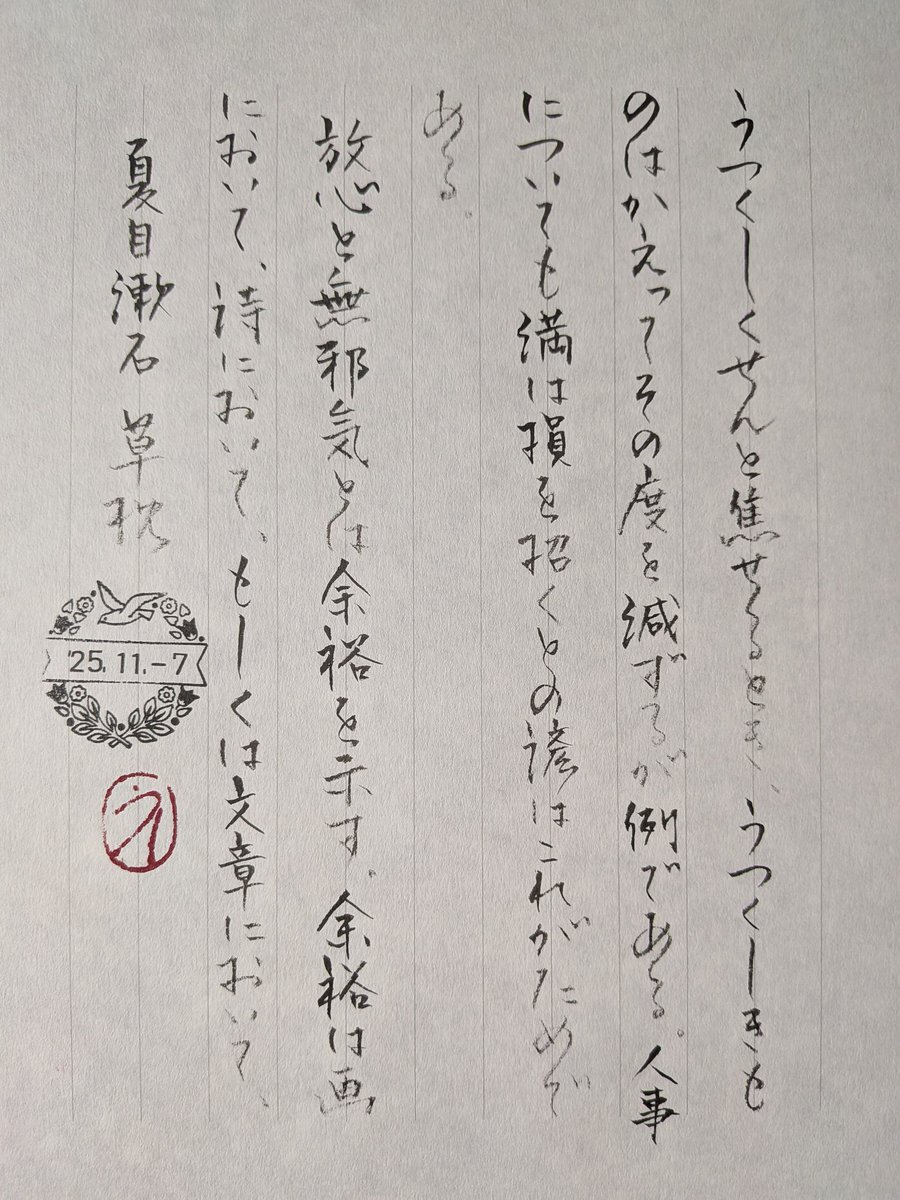 うつくしくせんと焦せるとき、うつくしきも
のはかえってその度を減ずるが例である。人事
についても満は損を招くとの諺はこれがためで
ある。
放心と無邪気とは余裕を示す。余裕は画
において、詩において、もしくは文章において、
夏目漱石 草枕
'25.11.-7